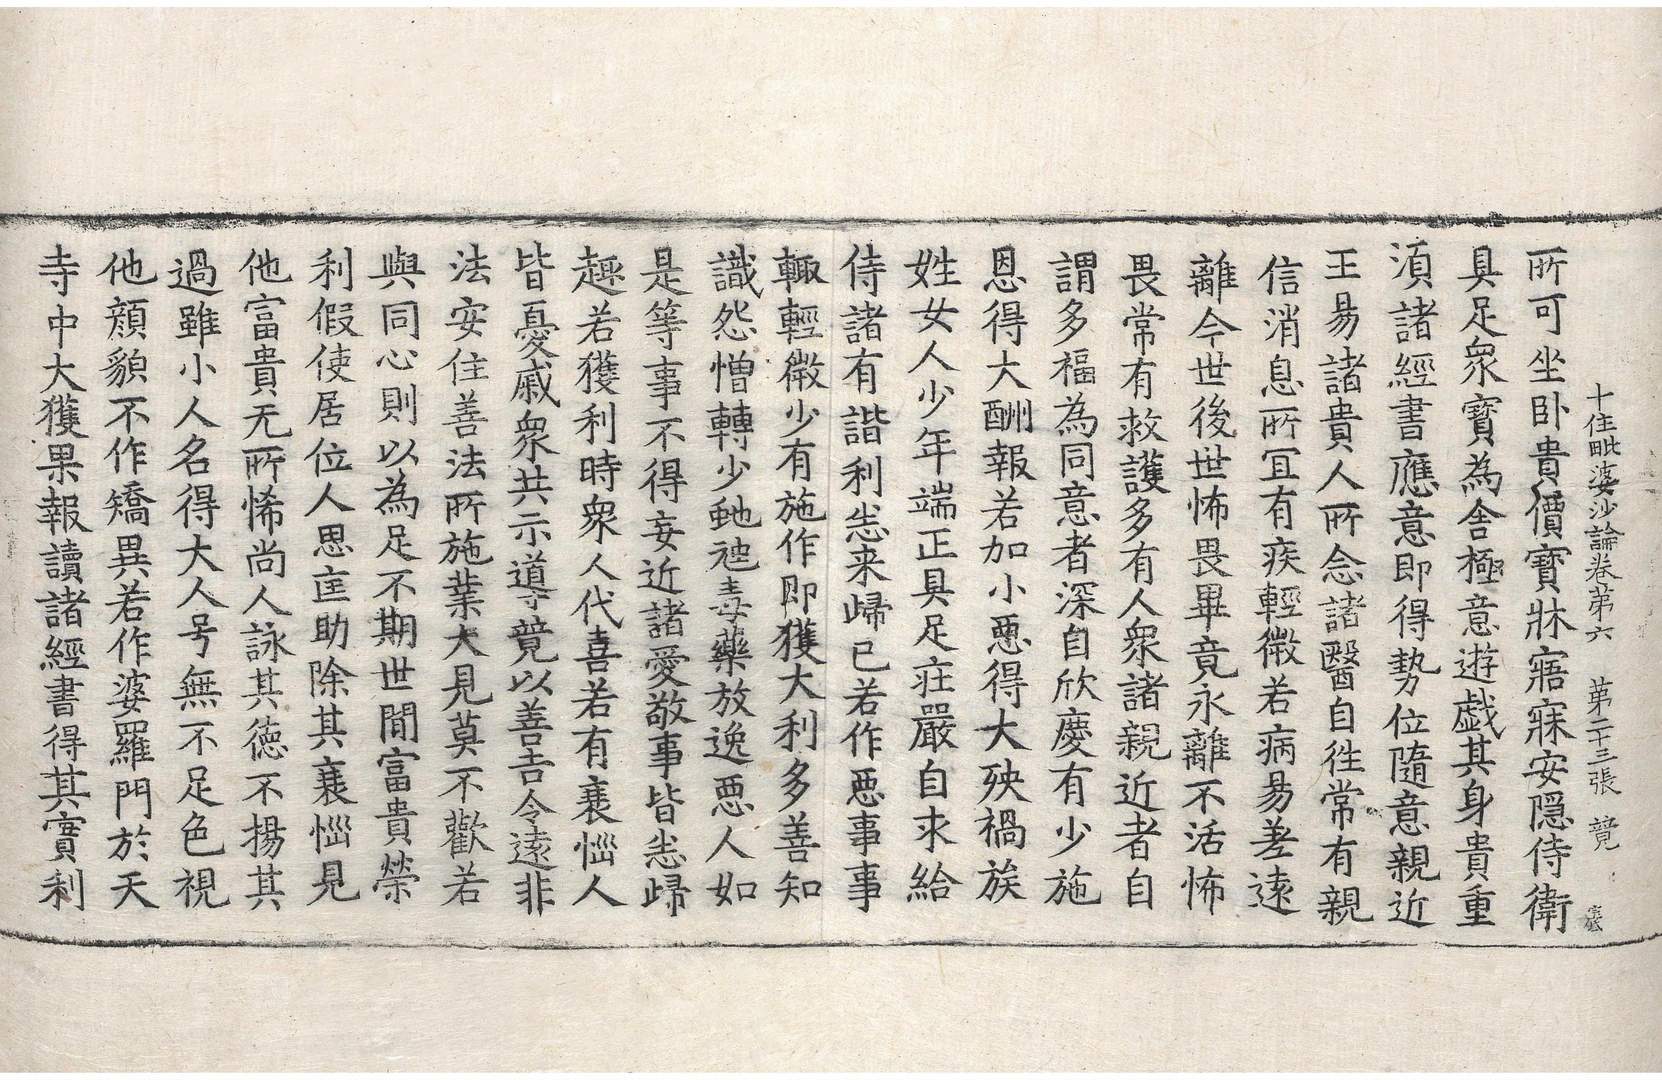 十住毗婆沙論卷苐六　苐二十三張　競
所可坐卧貴價寶牀寤寐安隱侍衛
具足衆寶為舍極意遊戱其身貴重
湏諸經書應意即得勢位隨意親近
王易諸貴人所念諸醫自徃常有親
信消息所冝有疾輕微若病易差遠
離今世後世怖畏畢竟永離不活怖
畏常有救護多有人衆諸親近者自
謂多福為同意者深自欣慶有少施
恩得大酬報若加小惡得大殃禍族
姓女人少年端正具足莊嚴自求給
侍諸有諮利悉来歸已若作惡事事
輙輕微少有施作即獲大利多善知
識怨憎轉少虵虺毒藥放逸惡人如
是等事不得妄近諸愛敬事皆悉歸
趣若獲利時衆人代喜若有衰惱人
皆憂慼衆共示導競以善吉令遠非
法安住善法所施業大見莫不歡若
與同心則以為足不期世間富貴榮
利假使居位人思匡助除其衰惱見
他富貴无所悕尚人詠其德不揚其
過雖小人名得大人号無不足色視
他顔貌不作矯異若作婆羅門於天
寺中大獲果報讀諸經書得其實利